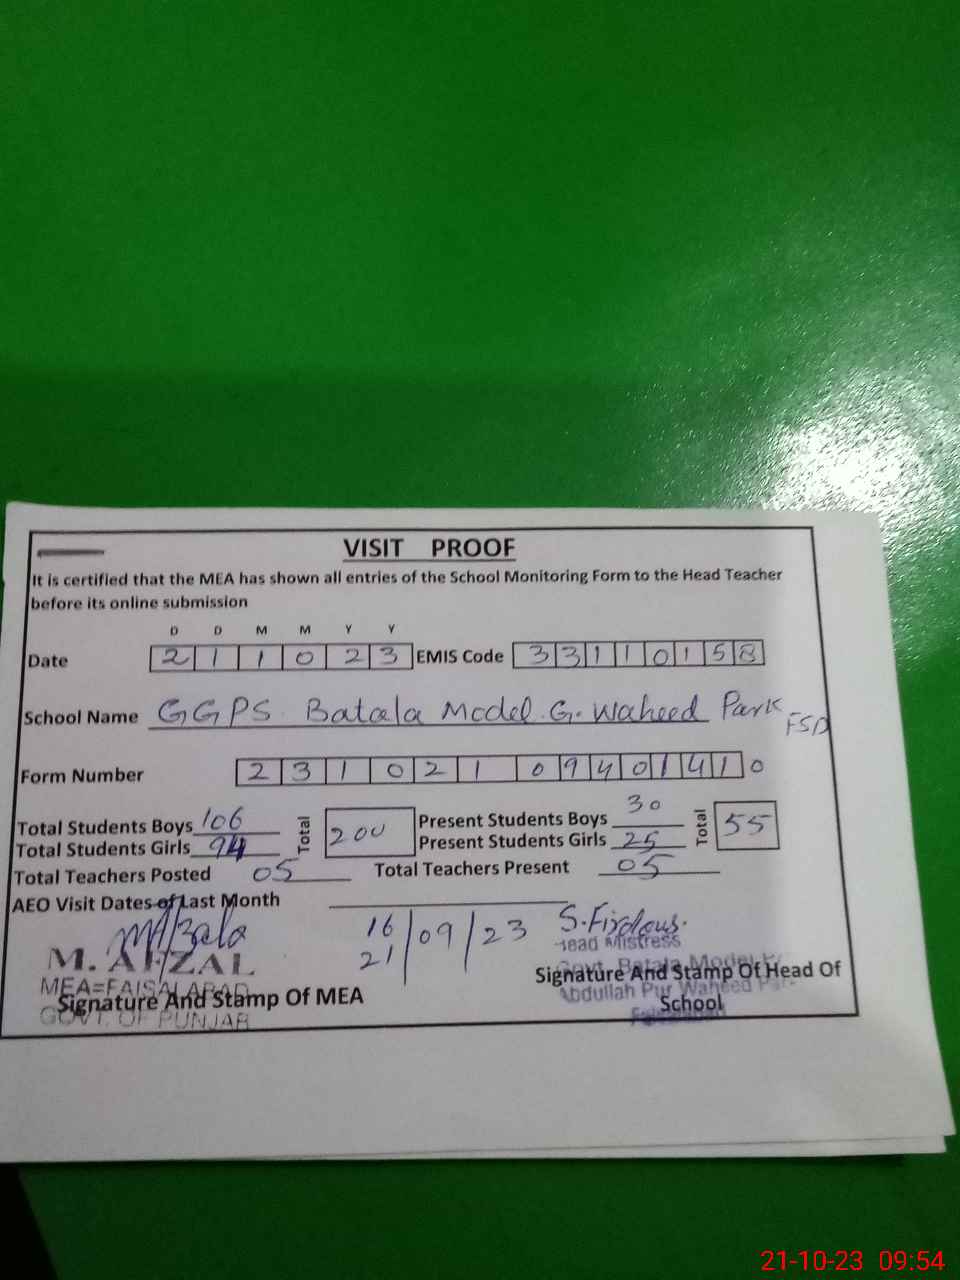 VISIT PROOF
It is certified that the MEA has shown all entries of the School Monitoring Form to the Head Teacher
before its online submission
D D M M Y Y
Date 2 1 1 0 2 3 EMIS Code 3 3 1 1 0 1 5 8
School Name GGPS. Batala Model. G. Waheed Park FSD
Form Number 2 3 1 0 2 1 0 9 4 0 1 4 1 0
Total Students Boys 106 Total 200 Present Students Boys 30 Total 55
Total Students Girls 94 Present Students Girls 25
Total Teachers Posted 05 Total Teachers Present 05
AEO Visit Dates of Last Month
16/09/23
21
S. Firdous.
Head Mistress
M. AFZAL
MEA=FAISALABAD
GOVT. OF PUNJAB
Signature And Stamp Of MEA
Govt. Batala Model
Abdullah Pur Waheed Par
Signature And Stamp Of Head Of
School
21-10-23 09:54